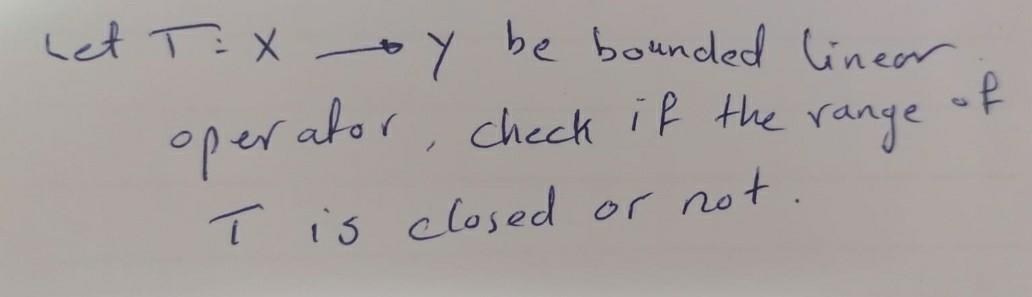 Let T: X → Y be bounded linear
operator, check if the range of
T is closed or not.